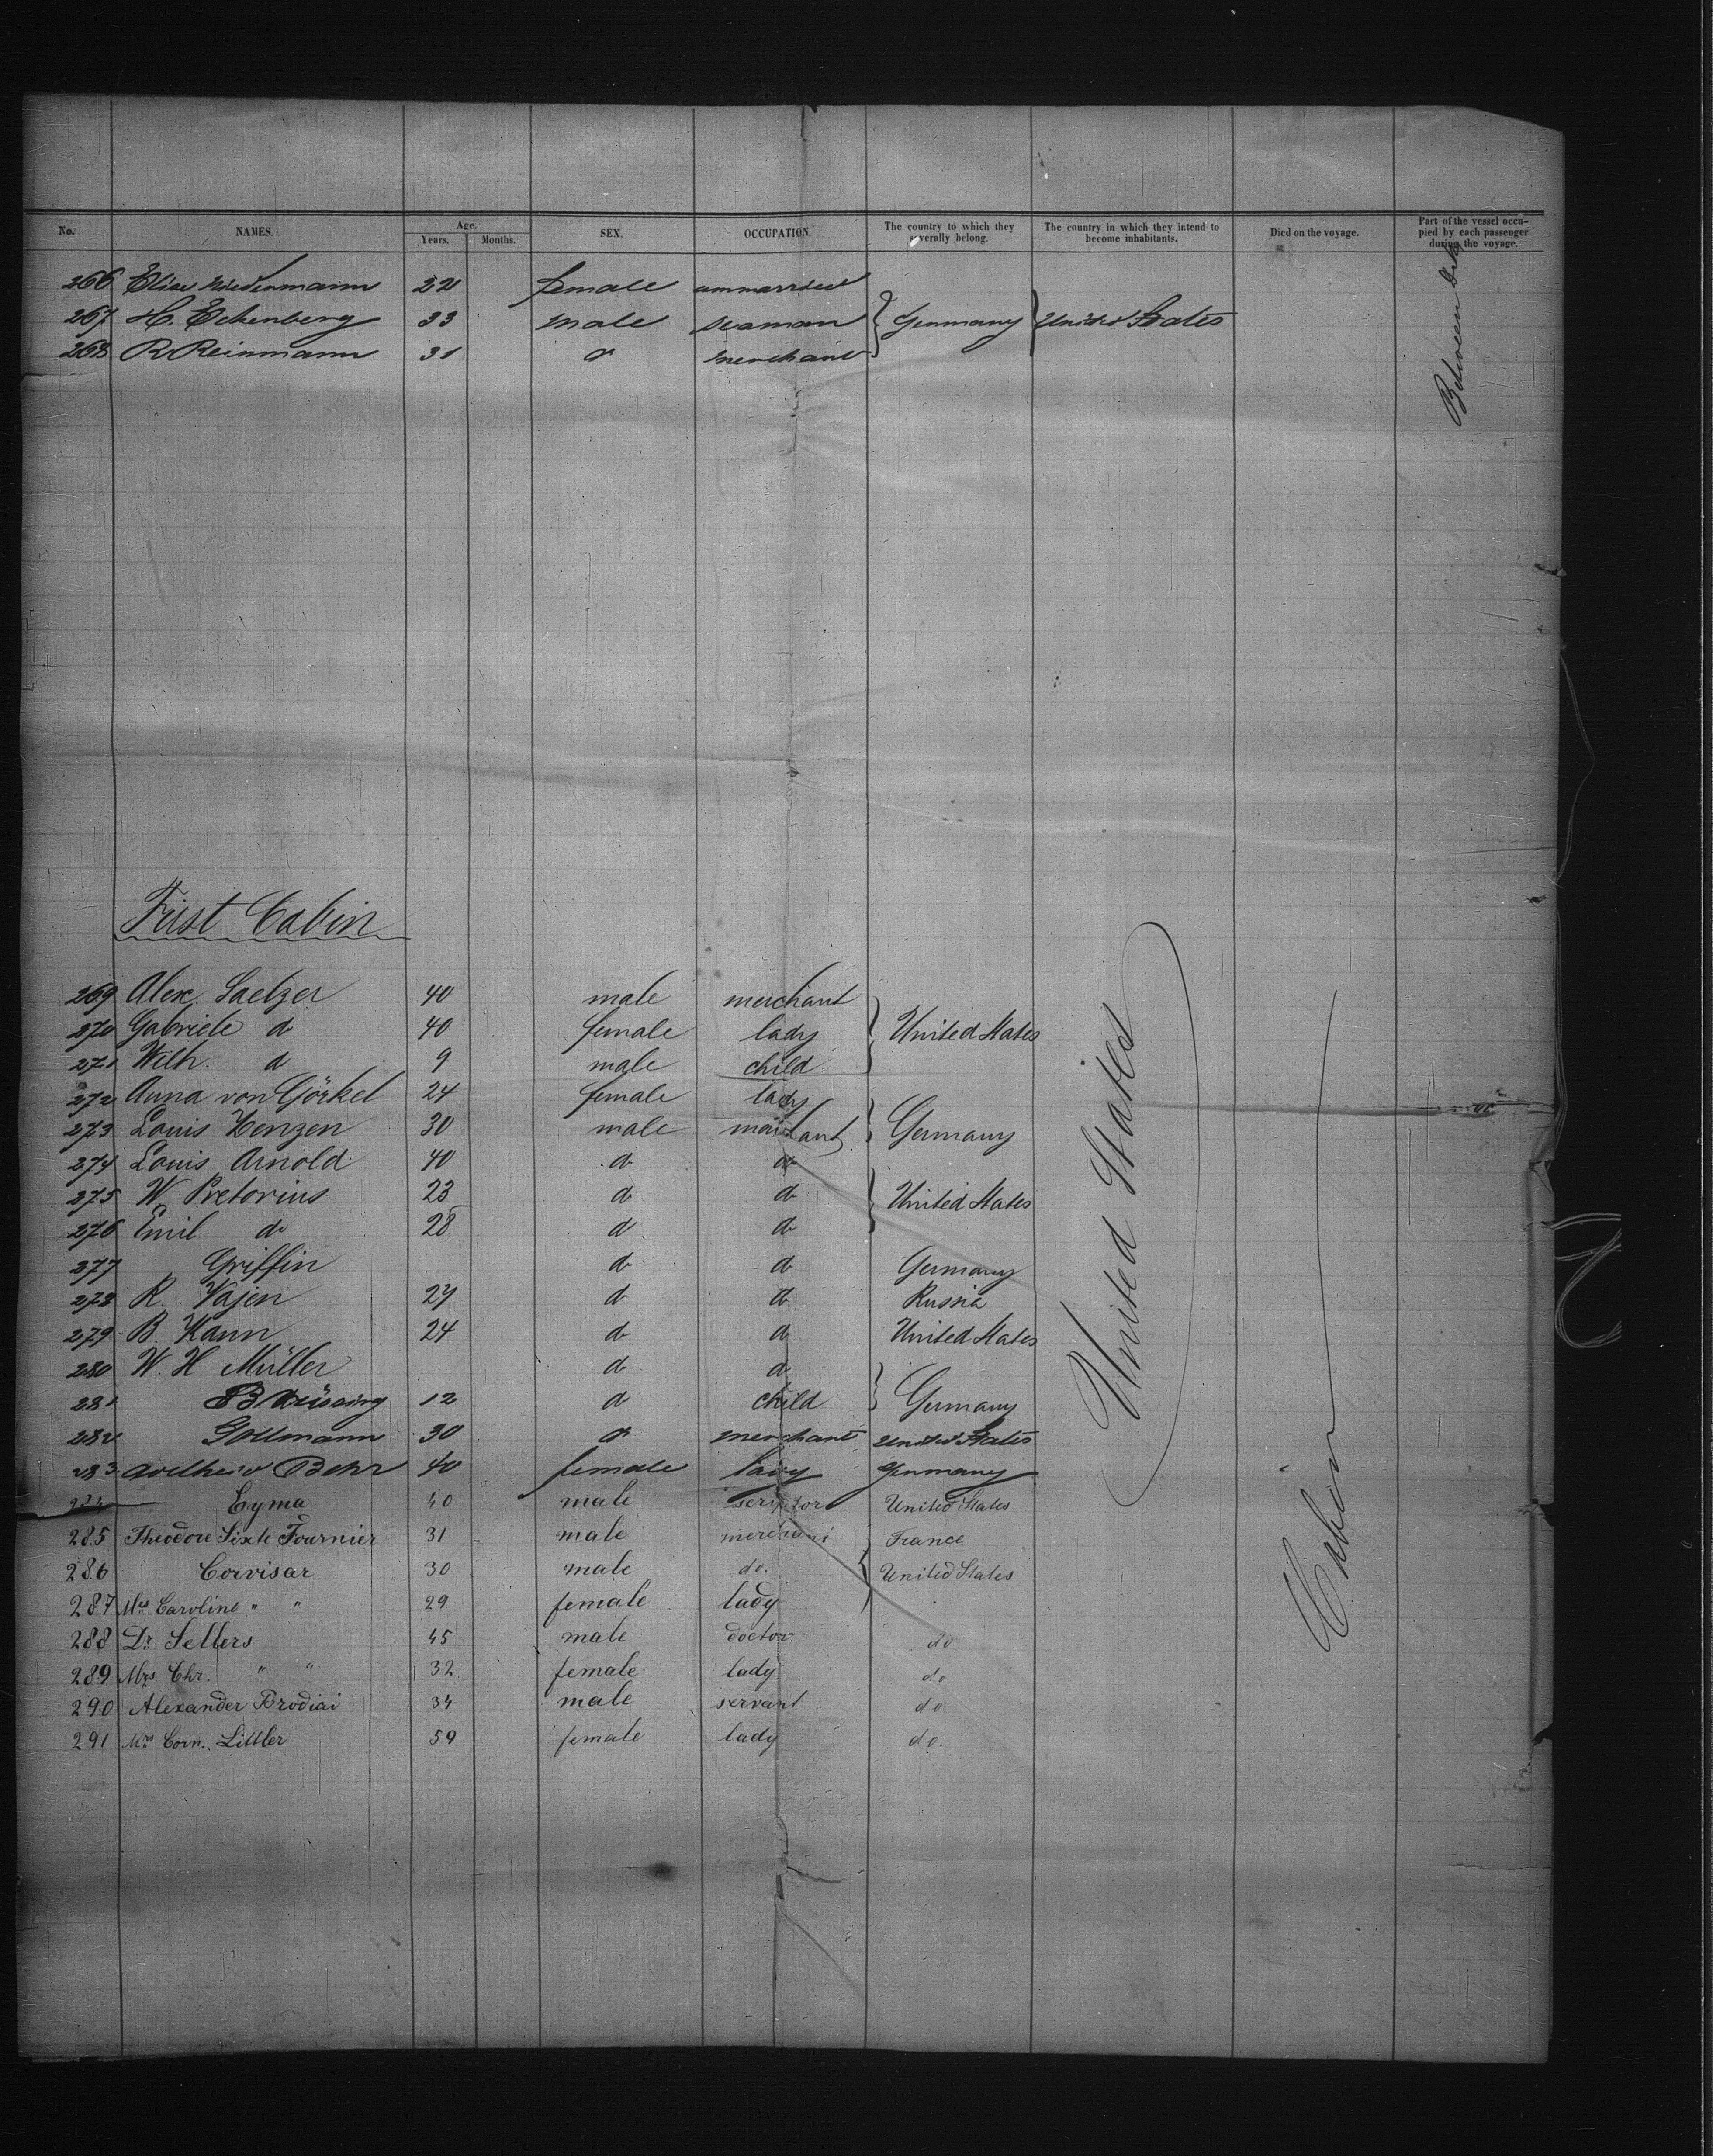 No. NAMES. Age. Years. Months. SEX. OCCUPATION. The country to which they severally belong. The country in which they intend to become inhabitants. Died on the voyage. Part of the vessel occupied by each passenger during the voyage.
266 Elise Niedermann 22 female unmarried
267 H. Eckenberg 33 male seaman Germany United States
268 R Reinmann 31 d merchant
Between
First Cabin
269 Alex. Saelzer 40 male merchant
270 Gabriele d 40 female lady United States
271 Wilh. d 9 male child
272 Anna von Görkel 24 female lady
273 Louis Henzen 30 male Germany
274 Louis Arnold 40 d d
275 W Pretorius 23 d d United States
276 Emil d 28 d d
277 Griffin d d Germany
278 R. Vajen 27 d d Russia
279 B. Kann 24 d d United States
280 W. H Müller d d
281 12 d child Germany
282 Gollmann 30 d merchant United States
283 Adelheid Behr 40 female lady Germany
284 Eyma 40 male United States
285 Theodore Sixte Fournier 31 male merchant France
286 Corvisar 30 male do. United States
287 Mrs Caroline " " 29 female lady
288 Dr Sellers 45 male doctor do
289 Mrs Chr. " " 32 female lady do
290 Alexander 34 male servant do
291 Mrs Corn. Littler 59 female lady do.
United States
Cabin